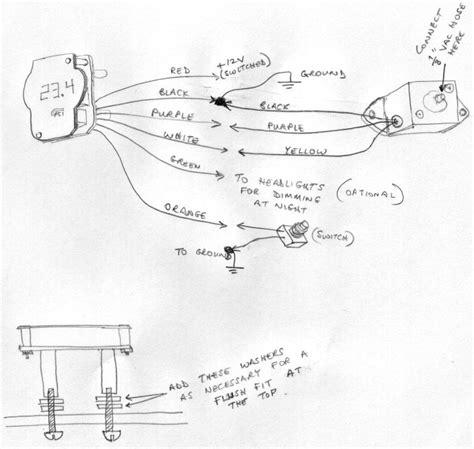 23.4
RED
+12V
(SWITCHED)
GROUND
BLACK
BLACK
PURPLE
PURPLE
WHITE
YELLOW
GREEN
TO HEADLIGHTS
FOR DIMMING
AT NIGHT
(OPTIONAL)
ORANGE
(SWITCH)
TO GROUND
CONNECT
1/8" VAC HOSE
HERE
ADD THESE WASHERS
AS NECESSARY FOR A
FLUSH FIT AT
THE TOP.